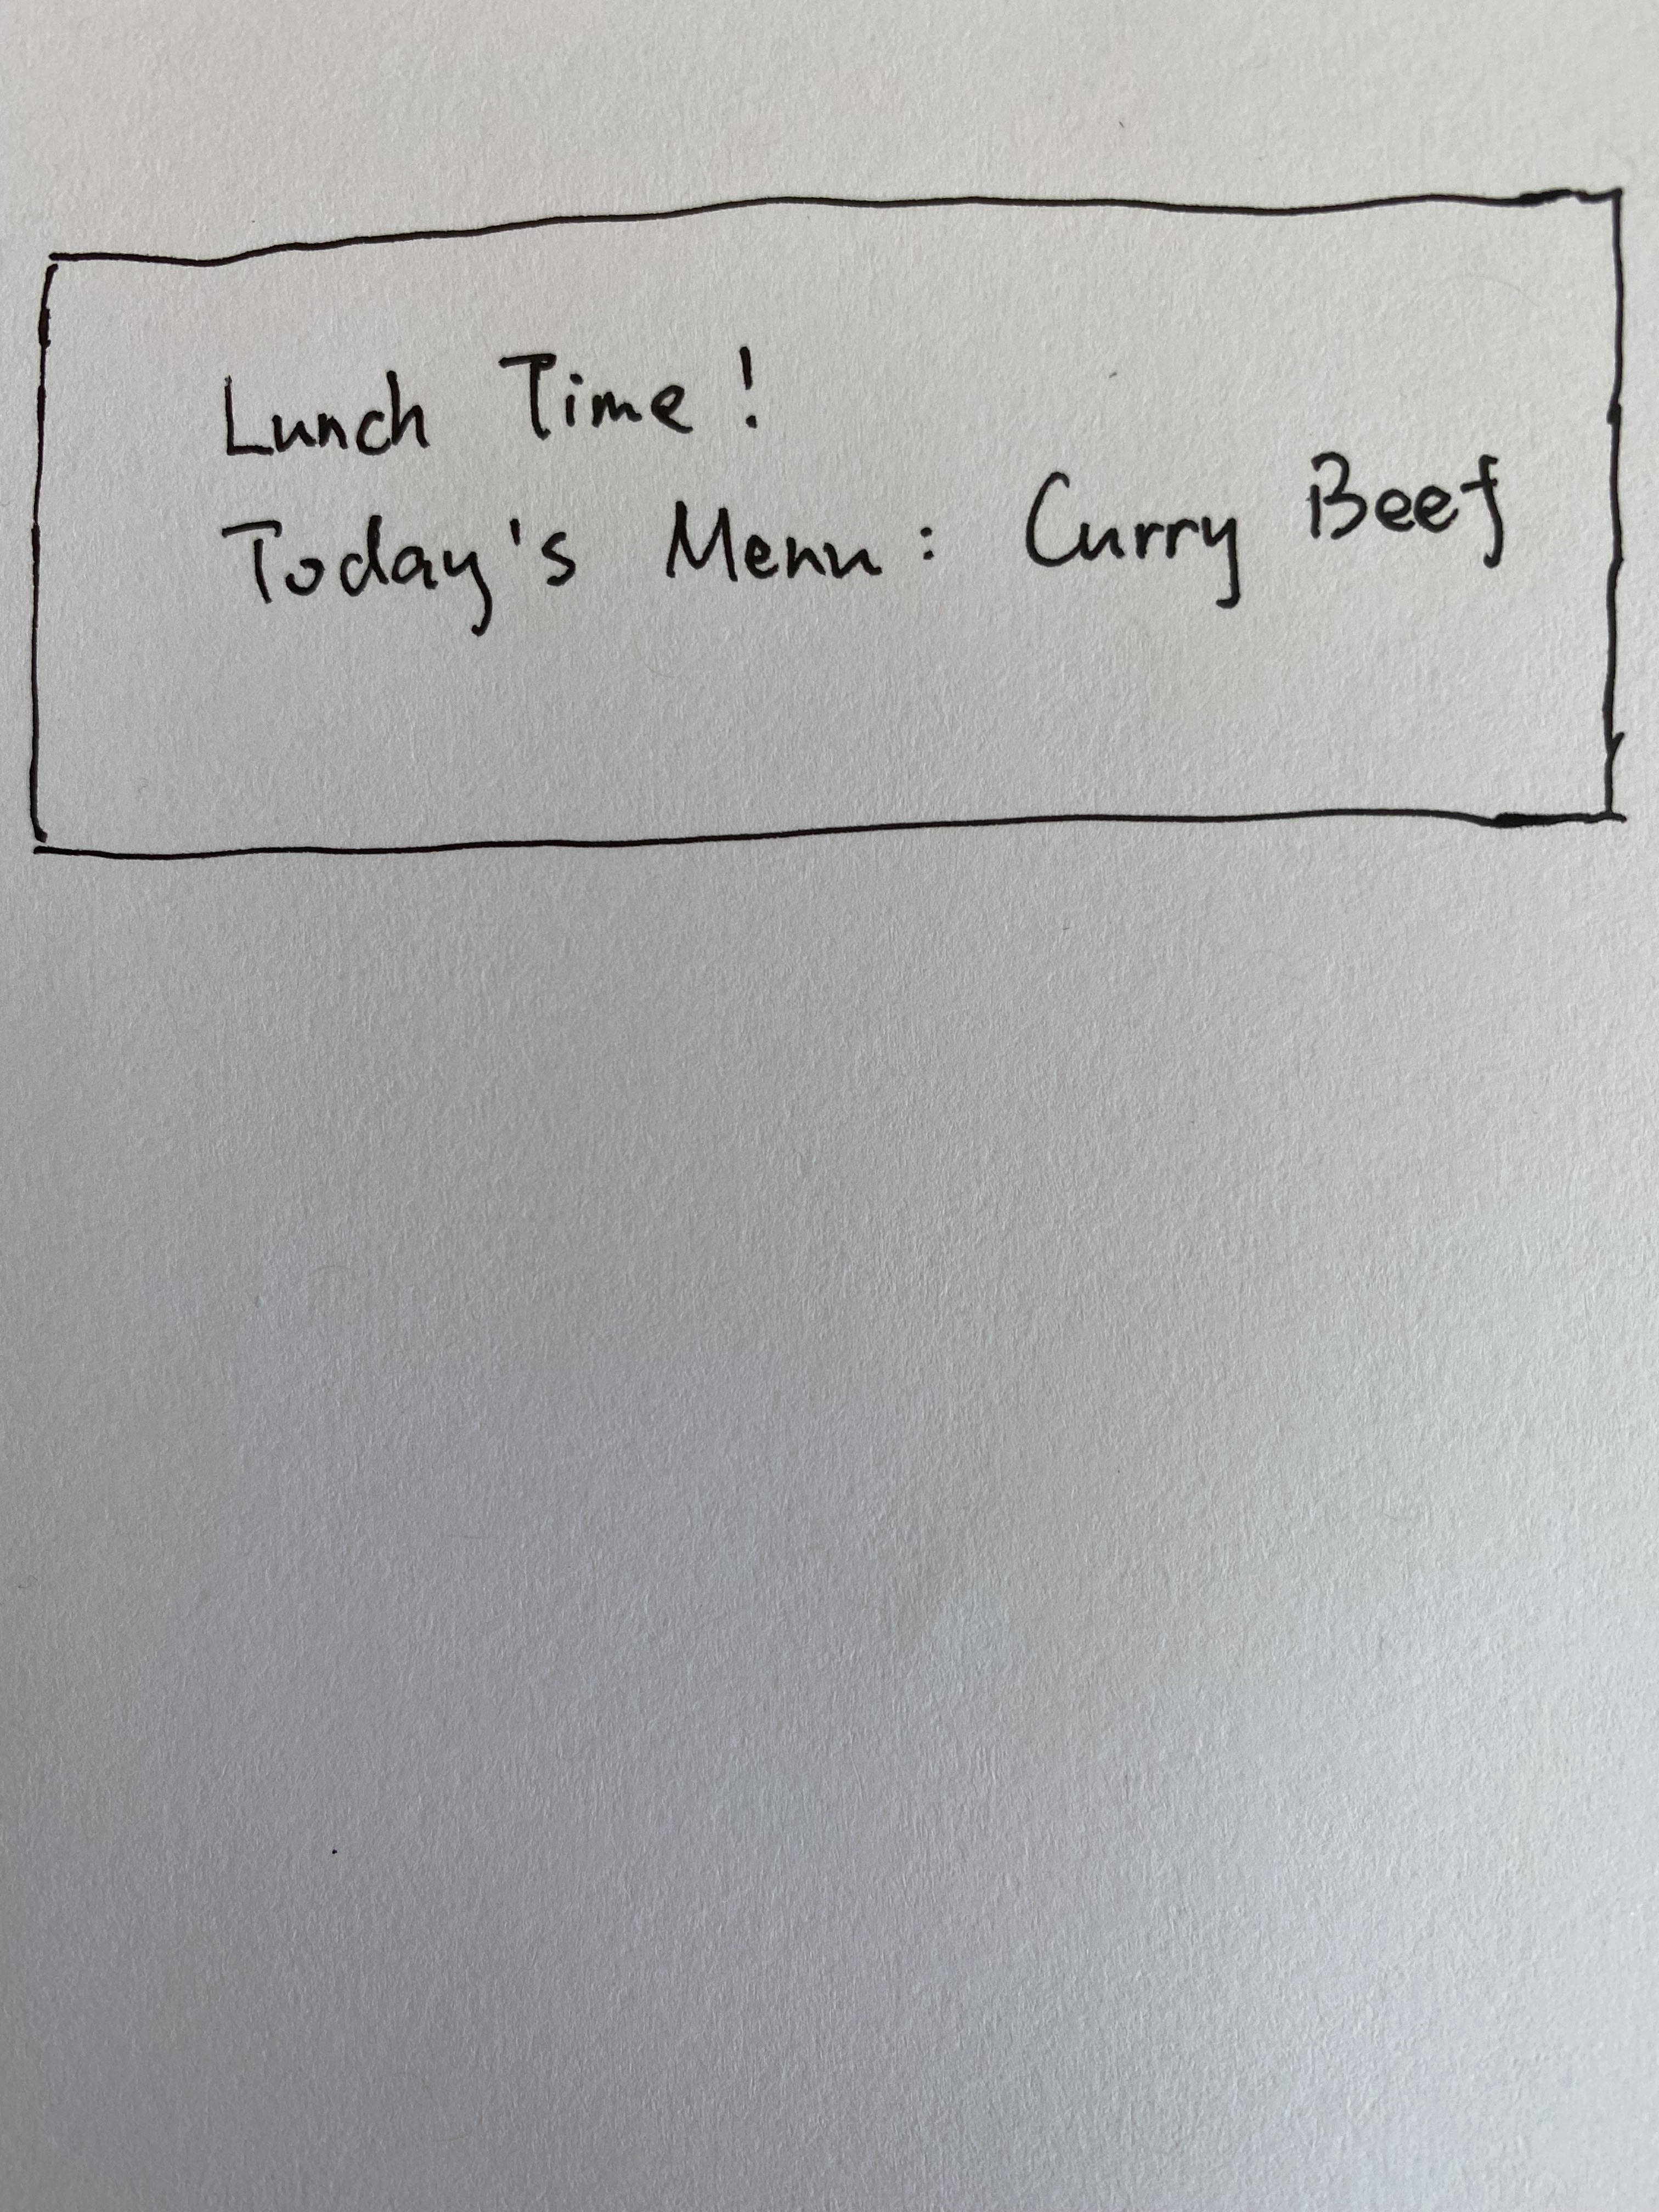 Lunch Time!
Today's Menu: Curry Beef